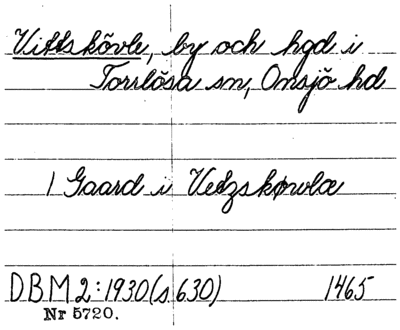 Vittskövle, by och hgd i
Torrlösa sn, Onsjö hd
1 Gaard i Vetzskøvlæ
DBM 2:1930 (s 630) 1465
Nr 5720.